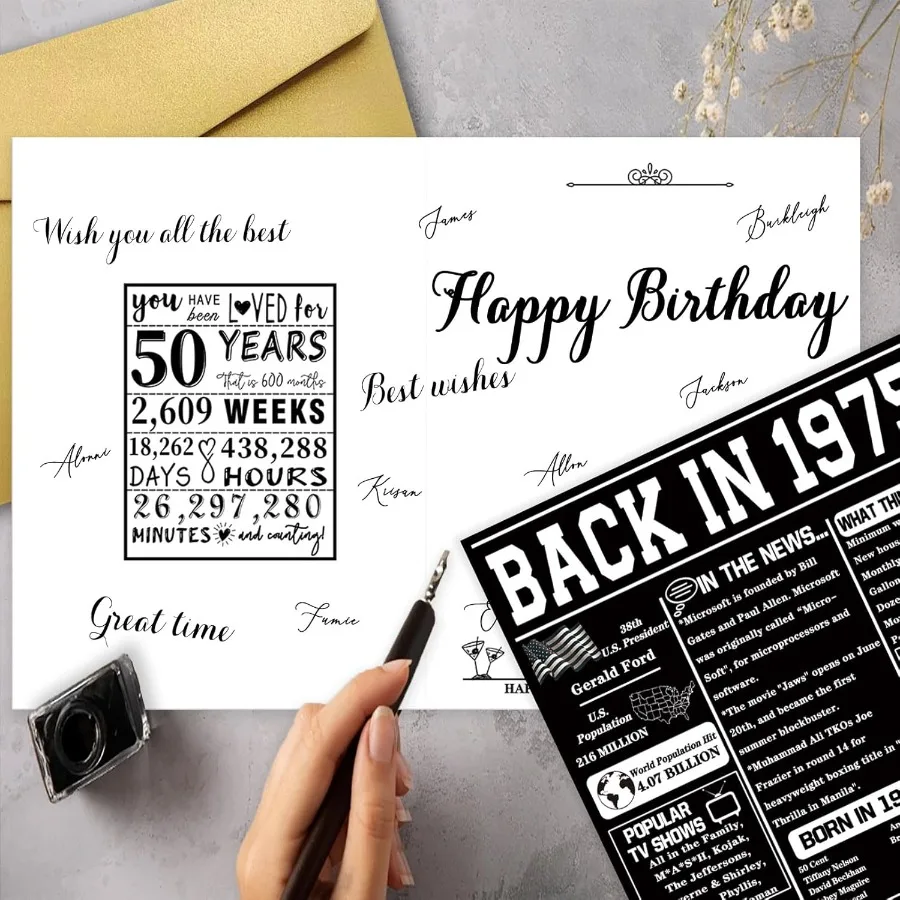 Wish you all the best
James
Burkleigh
Happy Birthday
you HAVE been LOVED for
50 YEARS
that is 600 months
2,609 WEEKS
18,262 DAYS
438,288 HOURS
26,297,280
MINUTES and counting!
Best wishes
Jackson
Alonni
Kiisan
Allon
Great time
Fumie
BACK IN 1975
IN THE NEWS...
*Microsoft is founded by Bill
Gates and Paul Allen. Microsoft
was originally called "Micro-
Soft", for microprocessors and
software.
*The movie "Jaws" opens on June
20th, and became the first
summer blockbuster.
*Muhammad Ali TKOs Joe
Frazier in round 14 for
heavyweight boxing title in
Thrilla in Manila".
38th
U.S. President
Gerald Ford
U.S.
Population
216 MILLION
World Population Hit
4.07 BILLION
POPULAR
TV SHOWS
All in the Family,
M*A*S*H, Kojak,
The Jeffersons,
Shirley,
Phyllis,
WHAT
Minimum
New
Monthly
BORN IN
50 Cent
Tiffany Nelson
David Beckham
Maguire